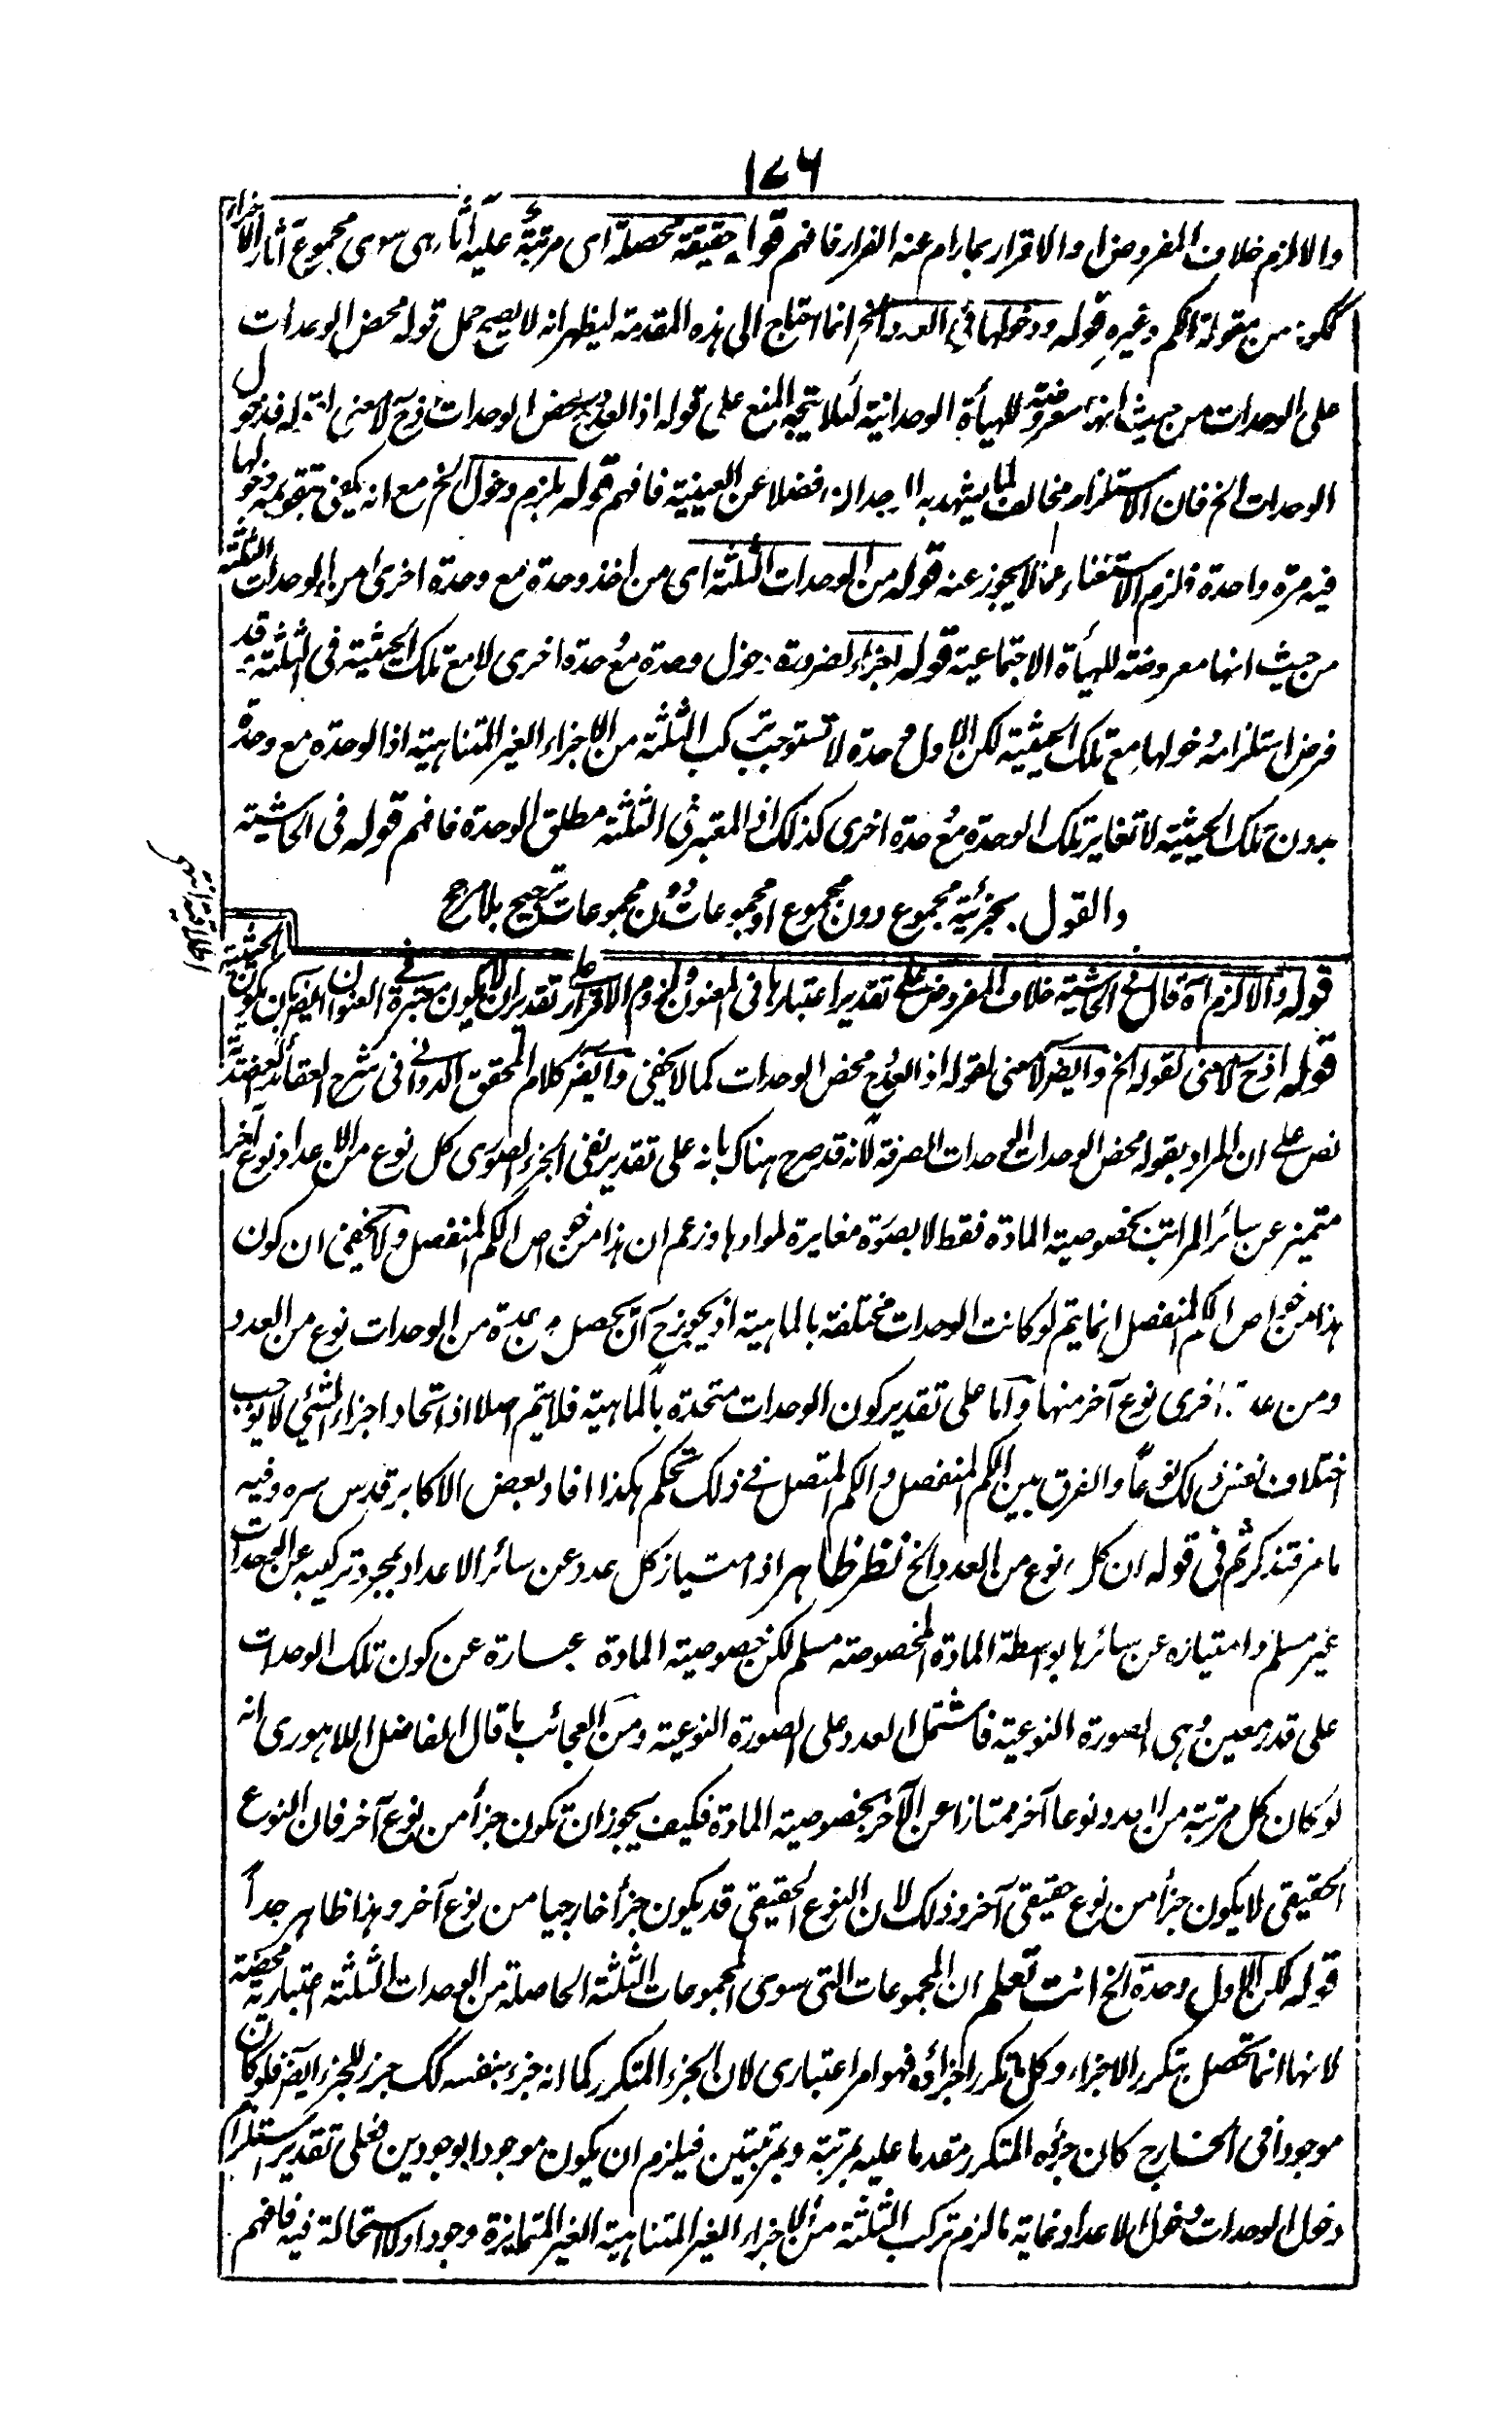 ١٧٦
والا لزم خلاف المفروض او الاقرار بما رام عنه الفرار فافهم قوله حقيقة محصلة اى مرتبة عليه آثار هى سوى مجموع آثار الاجزاء
ككونه من مقولة الكم وغيره قوله ودخولها فى العدد الخ انما احتاج الى هذه المقدمة ليظهر انه لا يصح حمل قوله محض الوحدات
على الوحدات من حيث انها معروضة للهيأة الوحدانية لئلا يتجه المنع على قوله اذ العدد ح محض الوحدات اذ ح لا معنى لقوله فدخول
الوحدات الخ فان الاستلزام مخالف لما يشهد به الوجدان فضلا عن العينية فافهم قوله يلزم دخول الخ مع انه يكفى تقومه دخولها
فيه مرة واحدة فلزم الاستغناء عما لا يجوز عنه قوله من الوحدات الثلثة اى من اخذ وحدة مع وحدة اخرى من الوحدات الثلثة
من حيث انها معروضة للهيأة الاجتماعية قوله اجزاء لضرورة دخول وحدة مع وحدة اخرى لا مع تلك الحيثية فى الثلثة وقد
فرض استلزامه دخولها مع تلك الحيثية لكن الاول وحدة لا تستوجب تركب الثلثة من الاجزاء الغير المتناهية اذ الوحدة مع وحدة
بدون تلك الحيثية لا تغاير تلك الوحدة مع وحدة اخرى كذلك اذ المعتبر فى الثلثة مطلق الوحدة فافهم قوله فى الحاشية
والقول بجزئية مجموع دون مجموع او مجموعات دون مجموعات ترجيح بلا مرجح
قوله والا لزم آه قال فى الحاشية خلاف المفروض على تقدير اعتبارها فى المعنون ولزوم الاقرار على تقدير ان لا يكون معتبرة فى العنوان ايضا بان يكون الحيثية
قوله اذ ح لا معنى لقوله الخ وايضا لا معنى لقوله اذ العدد ح محض الوحدات كما لا يخفى وايضا كلام المحقق الدوانى فى شرح العقائد العضدية
نص على ان المراد بقوله محض الوحدات الوحدات الصرفة لانه قد صرح هناك بانه على تقدير نفى الجزء الصورى كل نوع من الاعداد نوع آخر
متميز عن سائر المراتب بخصوصية المادة فقط لا بصورة مغايرة لموادها وزعم ان هذا من خواص الكم المنفصل ولا يخفى ان كون
هذا من خواص الكم المنفصل انما يتم لو كانت الوحدات مختلفة بالماهية اذ يجوز ح ان يحصل من عدة من الوحدات نوع من العدد
ومن عدة اخرى نوع آخر منها واما على تقدير كون الوحدات متحدة بالماهية فلا يتم اصلا اذ اتحاد اجزاء الشئ لا يوجب
اختلاف نفس ذلك نوعا والفرق بين الكم المنفصل والكم المتصل فى ذلك تحكم هكذا افاد بعض الاكابر قدس سره وفيه
ما مر فتذكر ثم فى قوله ان كل نوع من العدد الخ نظر ظاهر اذ امتياز كل عدد عن سائر الاعداد بمجرد تركيبه عن الوحدات
غير مسلم وامتيازه عن سائرها بواسطة المادة المخصوصة مسلم لكن خصوصية المادة عبارة عن كون تلك الوحدات
على قدر معين وهى الصورة النوعية فاشتمل العدد على الصورة النوعية ومن العجائب ما قال الفاضل اللاهورى انه
لو كان كل مرتبة من العدد نوعا آخر ممتازا عن الآخر بخصوصية المادة فكيف يجوز ان تكون جزأ من نوع آخر فان النوع
الحقيقى لا يكون جزأ من نوع حقيقى آخر وذلك لان النوع الحقيقى قد يكون جزأ خارجيا من نوع آخر وهذا ظاهر جدا
قوله لكن الاول وحدة الخ انت تعلم ان المجموعات التى سوى المجموعات الثلثة الحاصلة من الوحدات الثلثة اعتبارية محضة
لانها انما تحصل بتكرر الاجزاء وكل ما تكرر اجزائه فهو امر اعتبارى لان الجزء المتكرر كما انه جزء بنفسه كك جزء للجزء ايضا فلو كان
موجودا فى الخارج كان جزئه المتكرر متقدما عليه بمرتبة وبمرتبتين فيلزم ان يكون موجودا بوجودين فعلى تقدير استلزام
دخول الوحدات دخول الاعداد غاية ما لزم تركب الثلثة من الاجزاء الغير المتناهية الغير المتمايزة وجودا ولا استحالة فيه فافهم